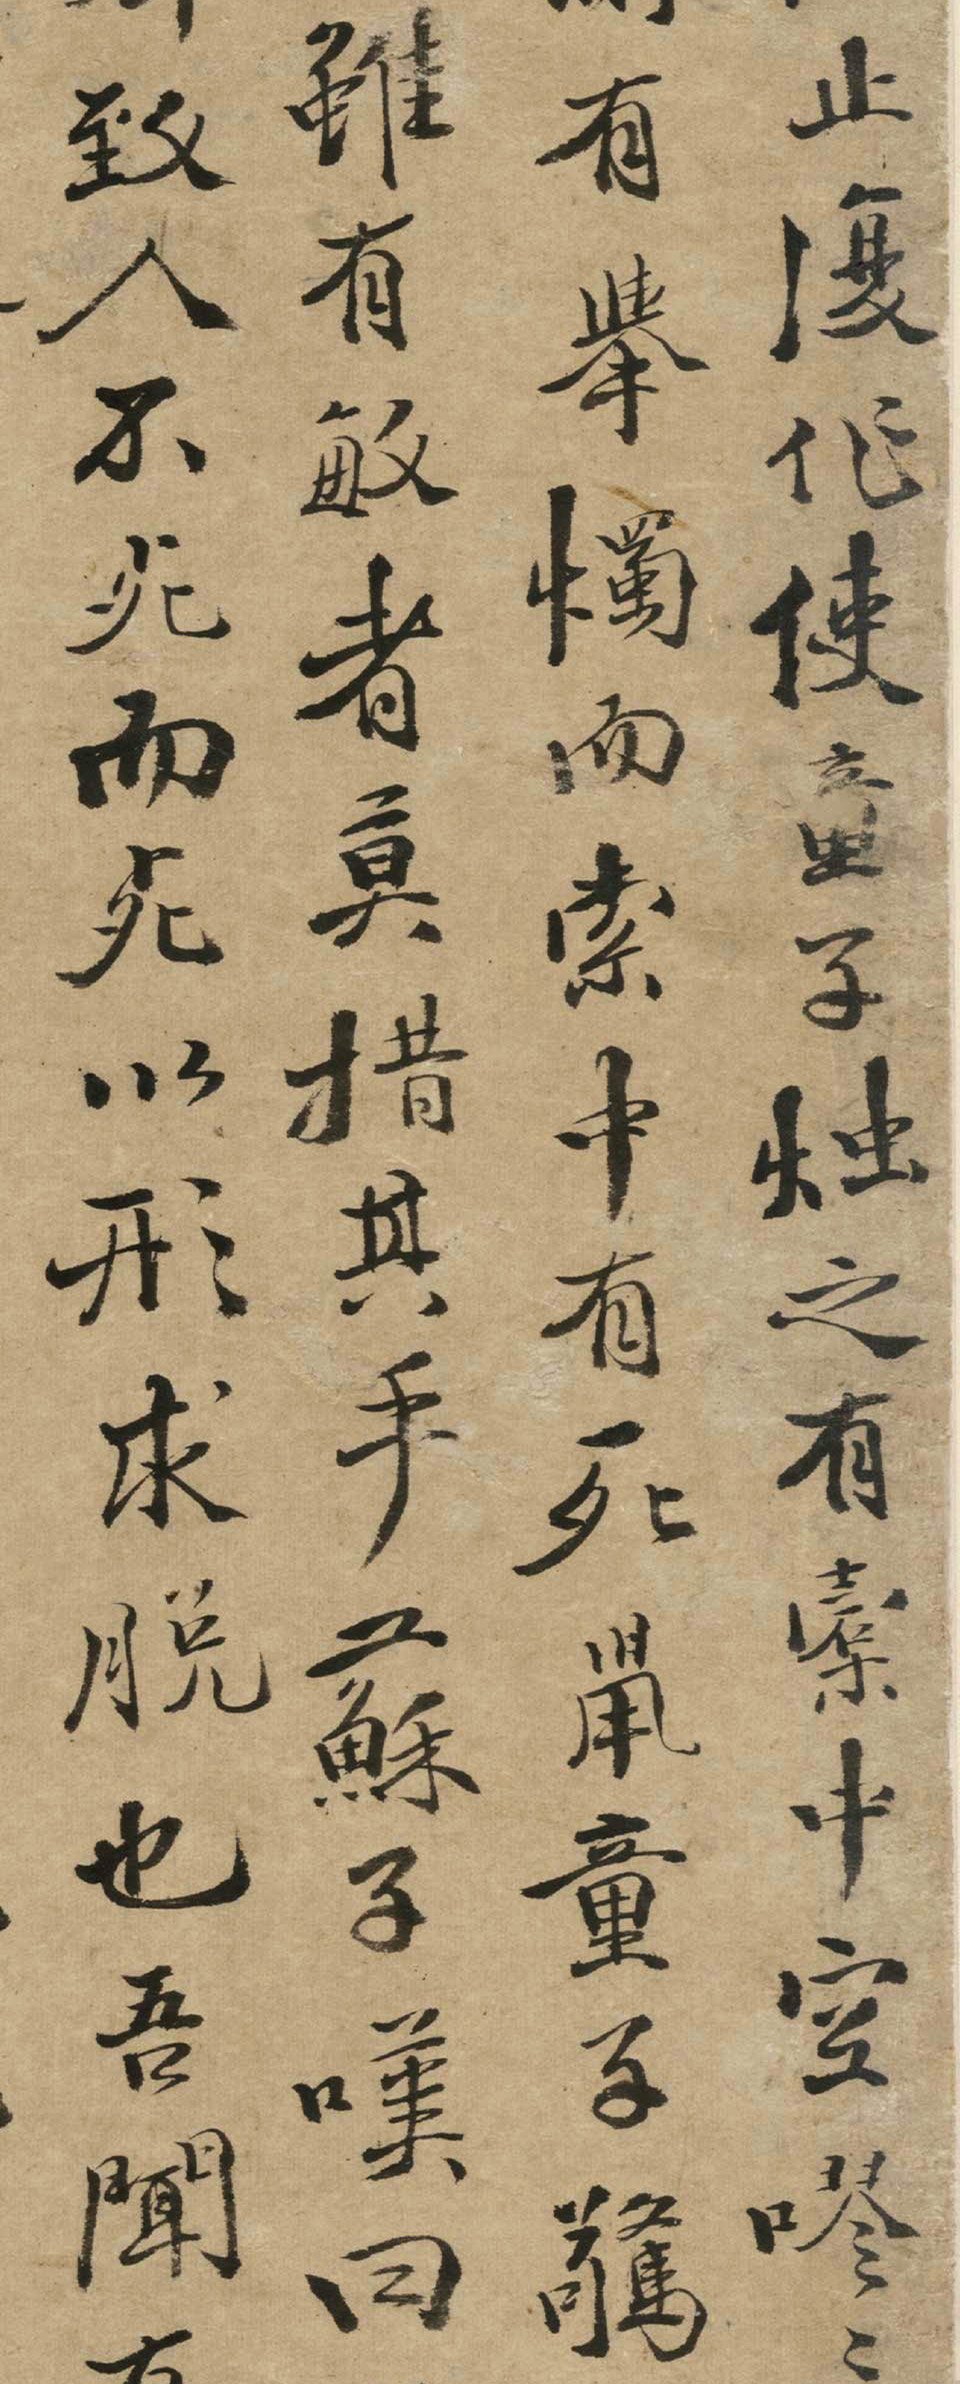 止復作使童子烛之有橐中空嘐〻
有舉燭而索中有死鼠童子驚
雖有敏者莫措其手蘇子嘆曰
致人不死而死以形求脱也吾聞有